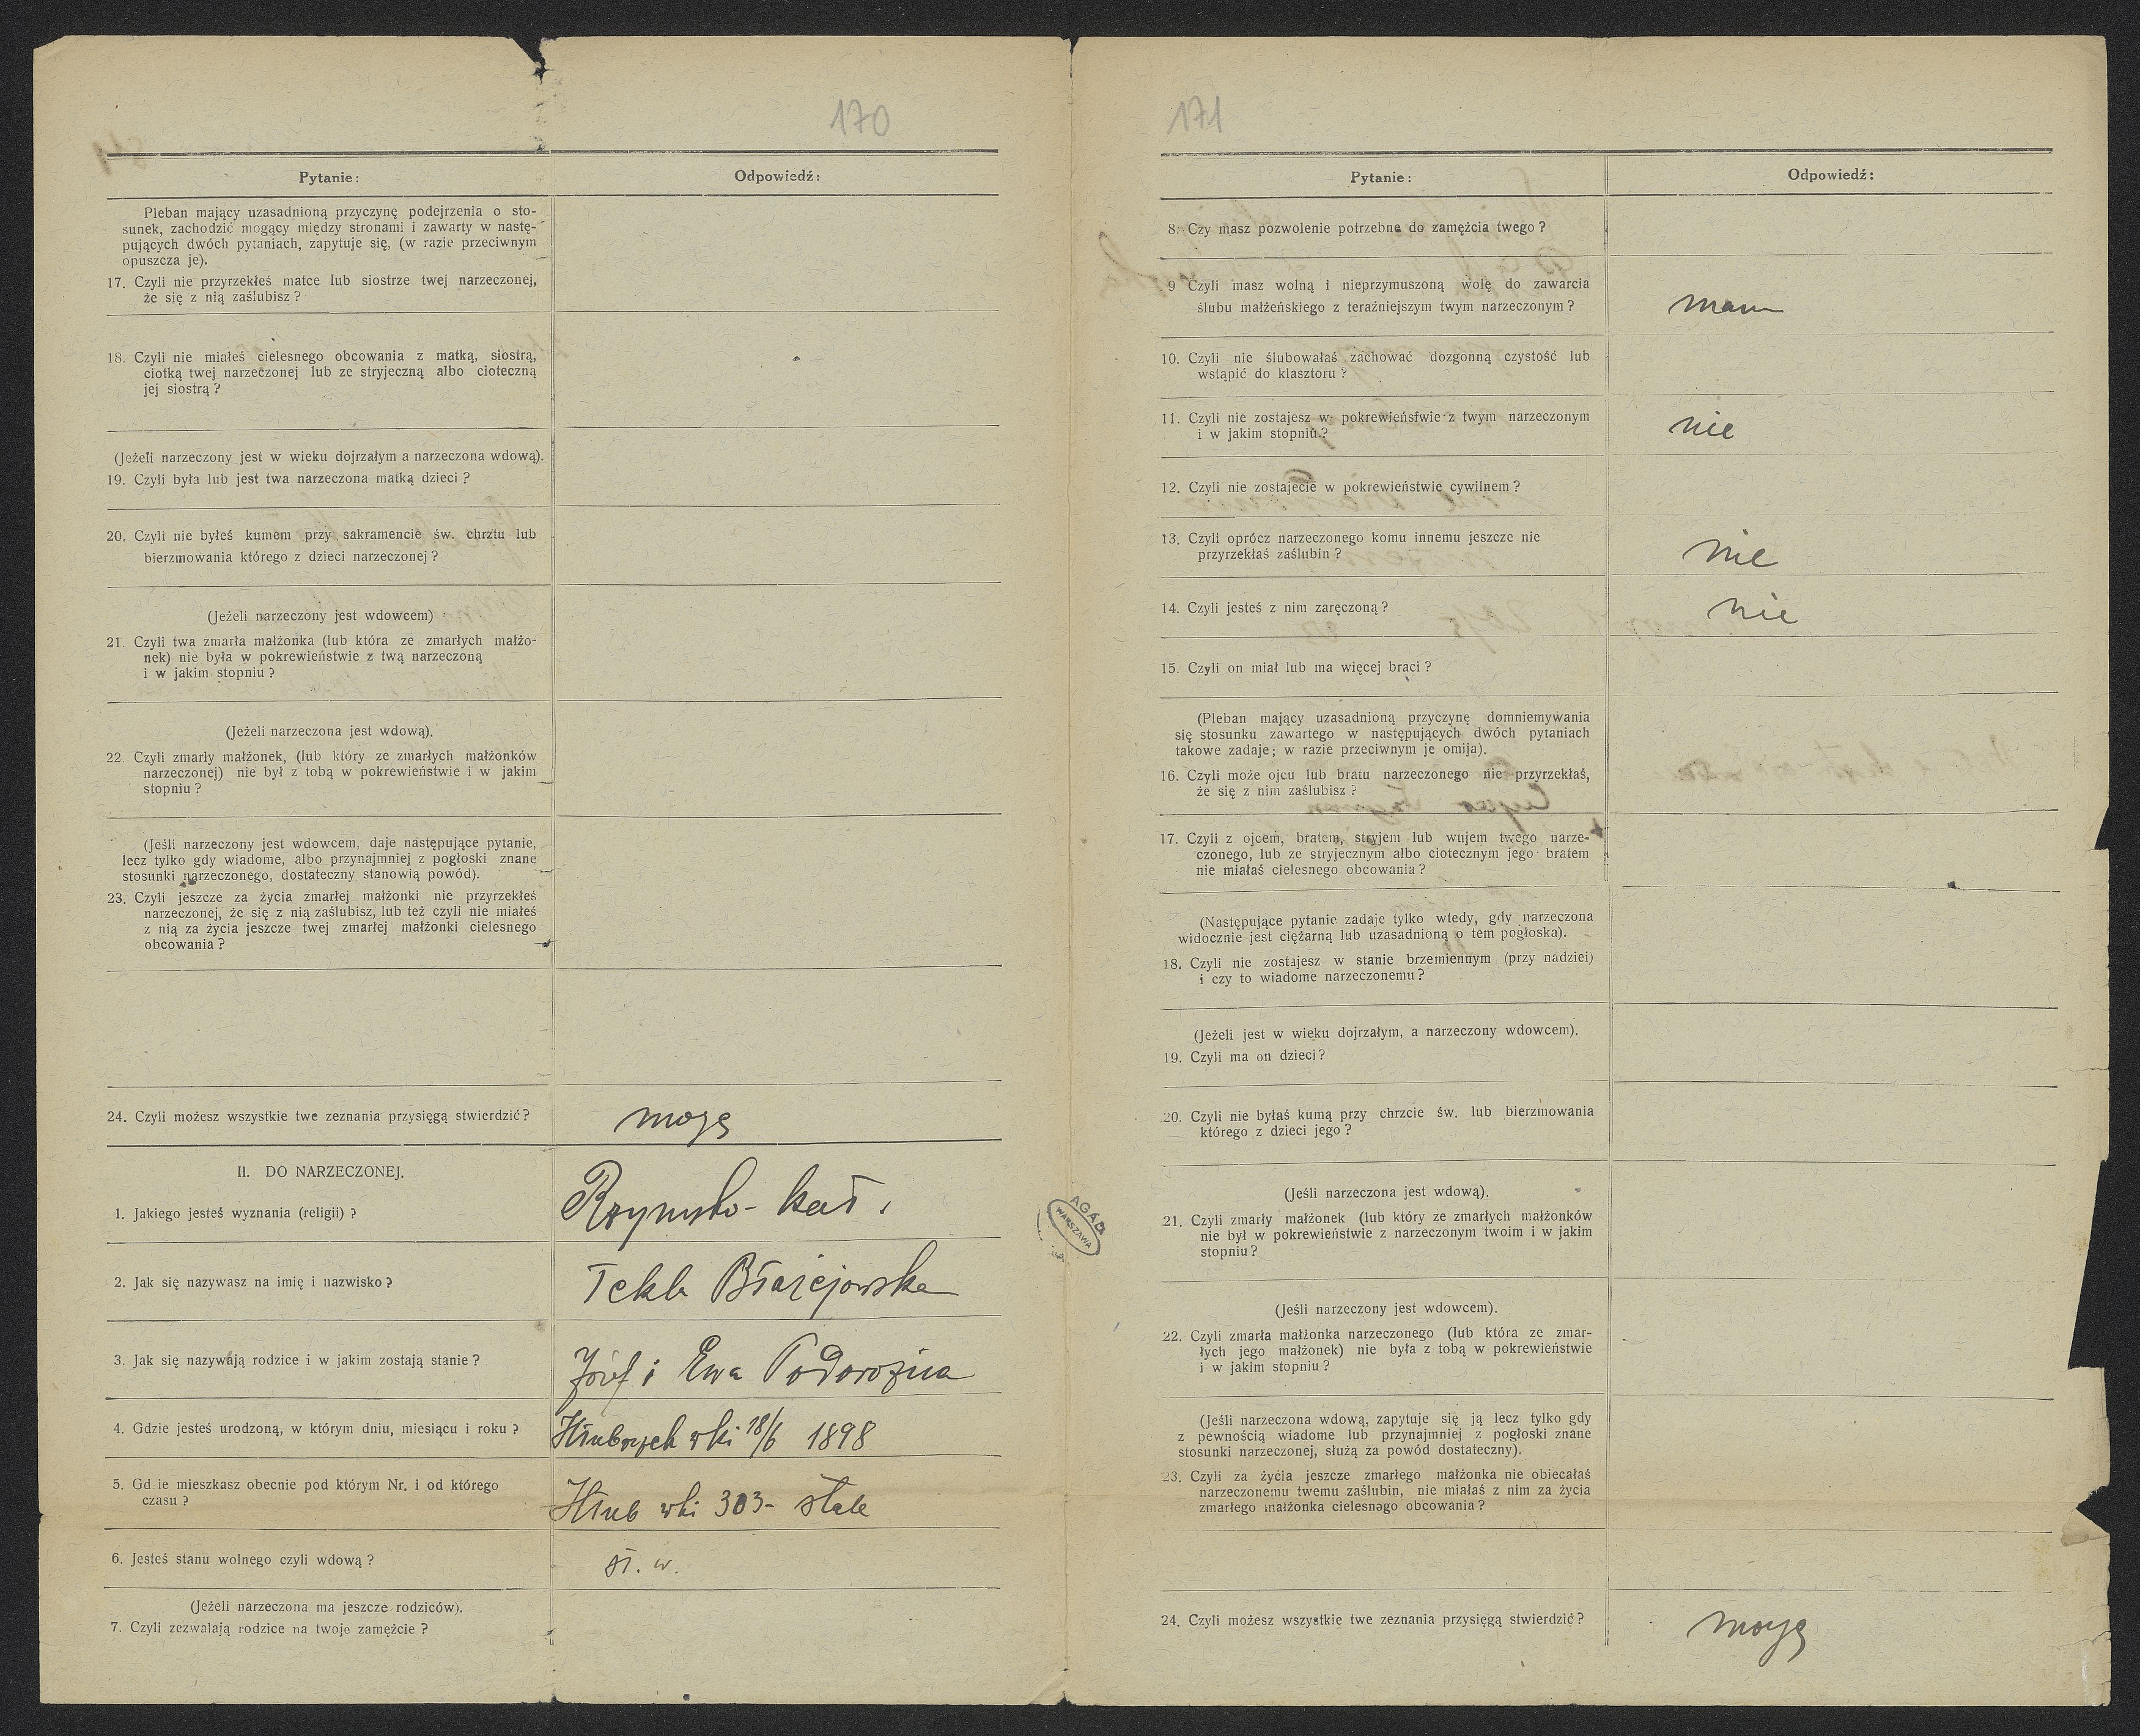 170
Pytanie:
Odpowiedź:
Pleban mający uzasadnioną przyczynę podejrzenia o sto-
sunek, zachodzić mogący między stronami i zawarty w nastę-
pujących dwóch pytaniach, zapytuje się, (w razie przeciwnym
opuszcza je).
17. Czyli nie przyrzekłeś matce lub siostrze twej narzeczonej,
że się z nią zaślubisz?
18. Czyli nie miałeś cielesnego obcowania z matką, siostrą,
ciotką twej narzeczonej lub ze stryjeczną albo cioteczną
jej siostrą?
(Jeżeli narzeczony jest w wieku dojrzałym a narzeczona wdową).
19. Czyli była lub jest twa narzeczona matką dzieci?
20. Czyli nie byłeś kumem przy sakramencie św. chrztu lub
bierzmowania którego z dzieci narzeczonej?
(Jeżeli narzeczony jest wdowcem)
21. Czyli twa zmarła małżonka (lub która ze zmarłych małżo-
nek) nie była w pokrewieństwie z twą narzeczoną
i w jakim stopniu?
(Jeżeli narzeczona jest wdową).
22. Czyli zmarły małżonek, (lub który ze zmarłych małżonków
narzeczonej) nie był z tobą w pokrewieństwie i w jakim
stopniu?
(Jeśli narzeczony jest wdowcem, daje następujące pytanie,
lecz tylko gdy wiadome, albo przynajmniej z pogłoski znane
stosunki narzeczonego, dostateczny stanowią powód).
23. Czyli jeszcze za życia zmarłej małżonki nie przyrzekłeś
narzeczonej, że się z nią zaślubisz, lub też czyli nie miałeś
z nią za życia jeszcze twej zmarłej małżonki cielesnego
obcowania?
24. Czyli możesz wszystkie twe zeznania przysięgą stwierdzić?
mogę
II. DO NARZECZONEJ.
1. Jakiego jesteś wyznania (religii)?
Rzymsko-kat.
2. Jak się nazywasz na imię i nazwisko?
Tekla Błażejowska
3. Jak się nazywają rodzice i w jakim zostają stanie?
Józef i Ewa Podorożna
4. Gdzie jesteś urodzoną, w którym dniu, miesiącu i roku?
18/6 1898
5. Gd ie mieszkasz obecnie pod którym Nr. i od którego
czasu?
303- stale
6. Jesteś stanu wolnego czyli wdową?
st. w.
(Jeżeli narzeczona ma jeszcze rodziców).
7. Czyli zezwalają rodzice na twoje zamężcie?
AGAD
WARSZAWA
171
Pytanie:
Odpowiedź:
8. Czy masz pozwolenie potrzebne do zamężcia twego?
9 Czyli masz wolną i nieprzymuszoną wolę do zawarcia
ślubu małżeńskiego z teraźniejszym twym narzeczonym?
mam
10. Czyli nie ślubowałaś zachować dozgonną czystość lub
wstąpić do klasztoru?
11. Czyli nie zostajesz w pokrewieństwie z twym narzeczonym
i w jakim stopniu?
nie
12. Czyli nie zostajecie w pokrewieństwie cywilnem?
13. Czyli oprócz narzeczonego komu innemu jeszcze nie
przyrzekłaś zaślubin?
nie
14. Czyli jesteś z nim zaręczoną?
nie
15. Czyli on miał lub ma więcej braci?
(Pleban mający uzasadnioną przyczynę domniemywania
się stosunku zawartego w następujących dwóch pytaniach
takowe zadaje; w razie przeciwnym je omija).
16. Czyli może ojcu lub bratu narzeczonego nie przyrzekłaś,
że się z nim zaślubisz?
17. Czyli z ojcem, bratem, stryjem lub wujem twego narze-
czonego, lub ze stryjecznym albo ciotecznym jego bratem
nie miałaś cielesnego obcowania?
(Następujące pytanie zadaje tylko wtedy, gdy narzeczona
widocznie jest ciężarną lub uzasadnioną o tem pogłoska).
18. Czyli nie zostajesz w stanie brzemiennym (przy nadziei)
i czy to wiadome narzeczonemu?
(Jeżeli jest w wieku dojrzałym, a narzeczony wdowcem).
19. Czyli ma on dzieci?
20. Czyli nie byłaś kumą przy chrzcie św. lub bierzmowania
którego z dzieci jego?
(Jeśli narzeczona jest wdową).
21. Czyli zmarły małżonek (lub który ze zmarłych małżonków
nie był w pokrewieństwie z narzeczonym twoim i w jakim
stopniu?
(Jeśli narzeczony jest wdowcem).
22. Czyli zmarła małżonka narzeczonego (lub która ze zmar-
łych jego małżonek) nie była z tobą w pokrewieństwie
i w jakim stopniu?
(Jeśli narzeczona wdową, zapytuje się ją lecz tylko gdy
z pewnością wiadome lub przynajmniej z pogłoski znane
stosunki narzeczonej, służą za powód dostateczny).
23. Czyli za życia jeszcze zmarłego małżonka nie obiecałaś
narzeczonemu twemu zaślubin, nie miałaś z nim za życia
zmarłego małżonka cielesnego obcowania?
24. Czyli możesz wszystkie twe zeznania przysięgą stwierdzić?
mogę